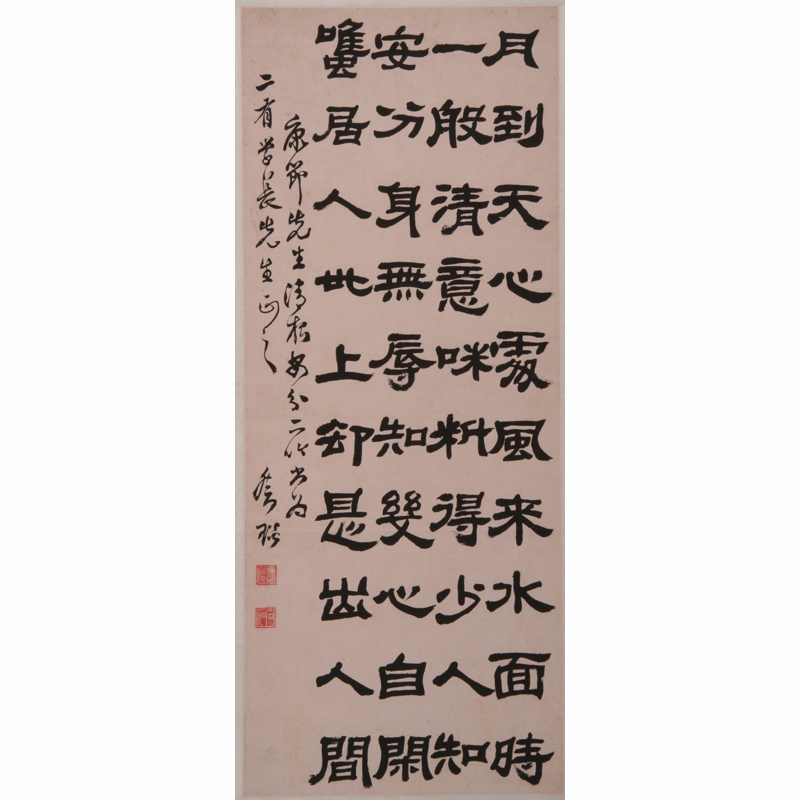 月到天心處風来水面時
一般清意味料得少人知
安分身無辱知幾心自閑
雖居人世上却是出人間
康節先生清夜安分二吟书为
二有学長先生正之